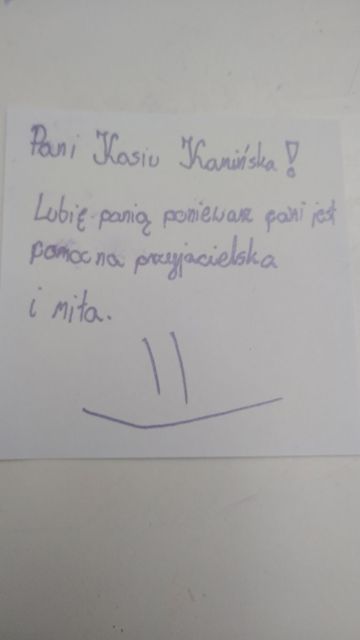 Pani Kasiu Kamińska!
Lubię panią poniewarz pani jest
pomocna przyjacielska
i miła.